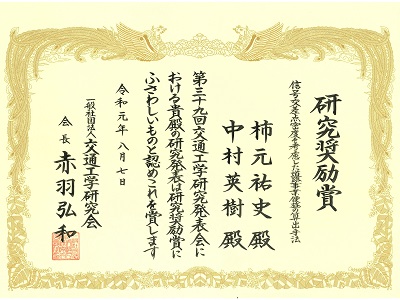 研究奨励賞
信号交差点密度を考慮した道路事業便益算出手法
柿元祐史殿
中村英樹殿
第三十九回交通工学研究発表会に
おける貴殿の研究発表は研究奨励賞に
ふさわしいものと認めこれを賞します
令和元年八月七日
一般社団法人交通工学研究会
会長 赤羽弘和